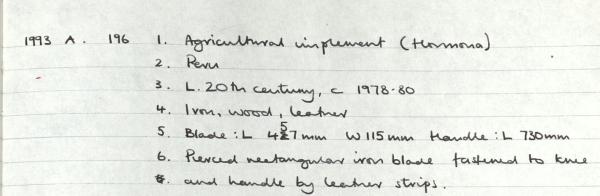 1993 A. 196 1. Agricultural implement (Hormona)
2. Peru
3. L. 20th century, c 1978-80
4. Iron, wood, leather
5. Blade: L 457mm W 115mm Handle: L 730mm
6. Pierced rectangular iron blade fastened to knee
and handle by leather strips.